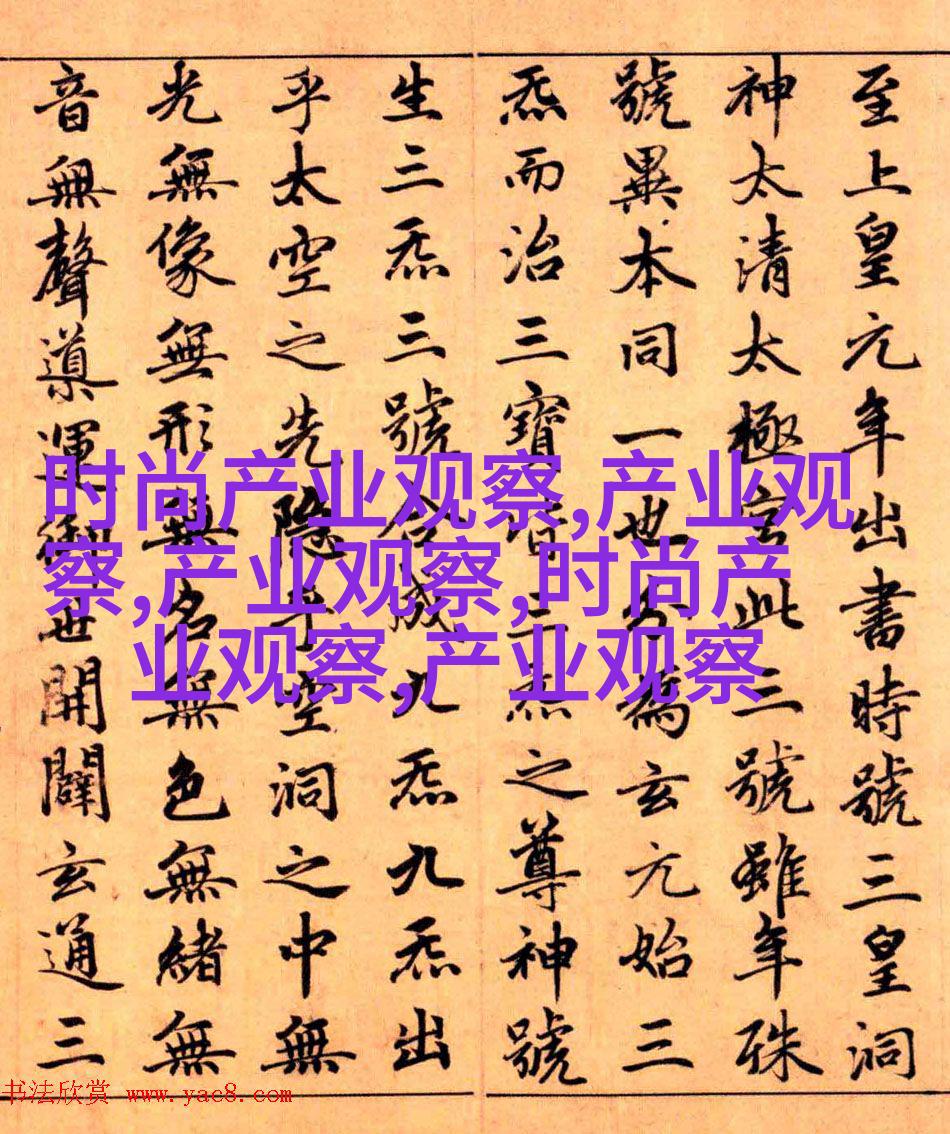 至上皇元年出書時號三皇洞
神太清太極宮此三號雖年殊
號異本同一也分為玄元始三
炁而治三寶皆三炁之尊神號
生三炁三號合成九炁九炁出
乎太空之先隱乎空洞之中無
光無像無形無名無色無緒無
音無聲導運御世開闢玄通三
时尚产业观察,产业观
察,产业观察,时尚产
业观察,产业观察
书法欣赏 www.yac8.com